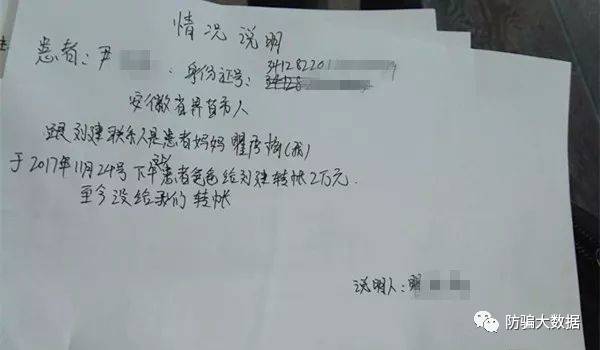 情况说明
患者：尹
身份证号：34128220119
34128
安徽省界首市人
跟刘建联系人是患者妈妈 (我)
于2017年11月24号下午患者爸爸给刘建转帐2万元.
至今没给我们转帐
说明人：
防骗大数据